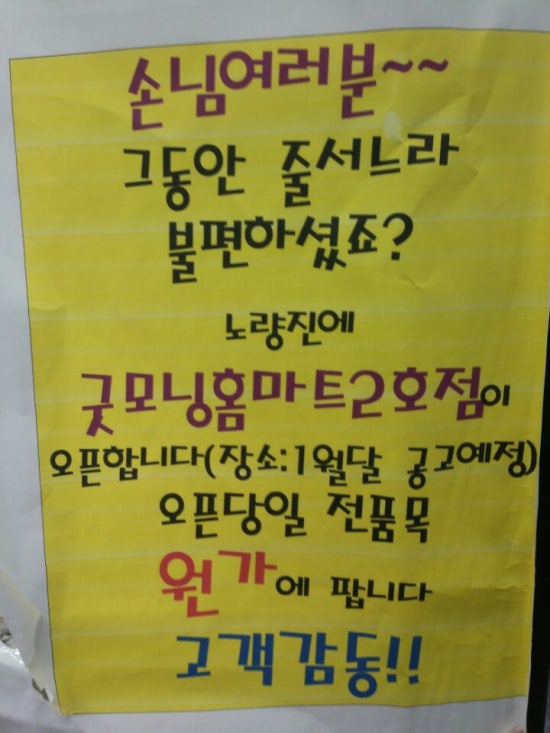 손님여러분~~
그동안 줄서느라
불편하셨죠?
노량진에
굿모닝홈마트2호점이
오픈합니다(장소:1월달 공고예정)
오픈당일 전품목
원가에 팝니다
고객감동!!